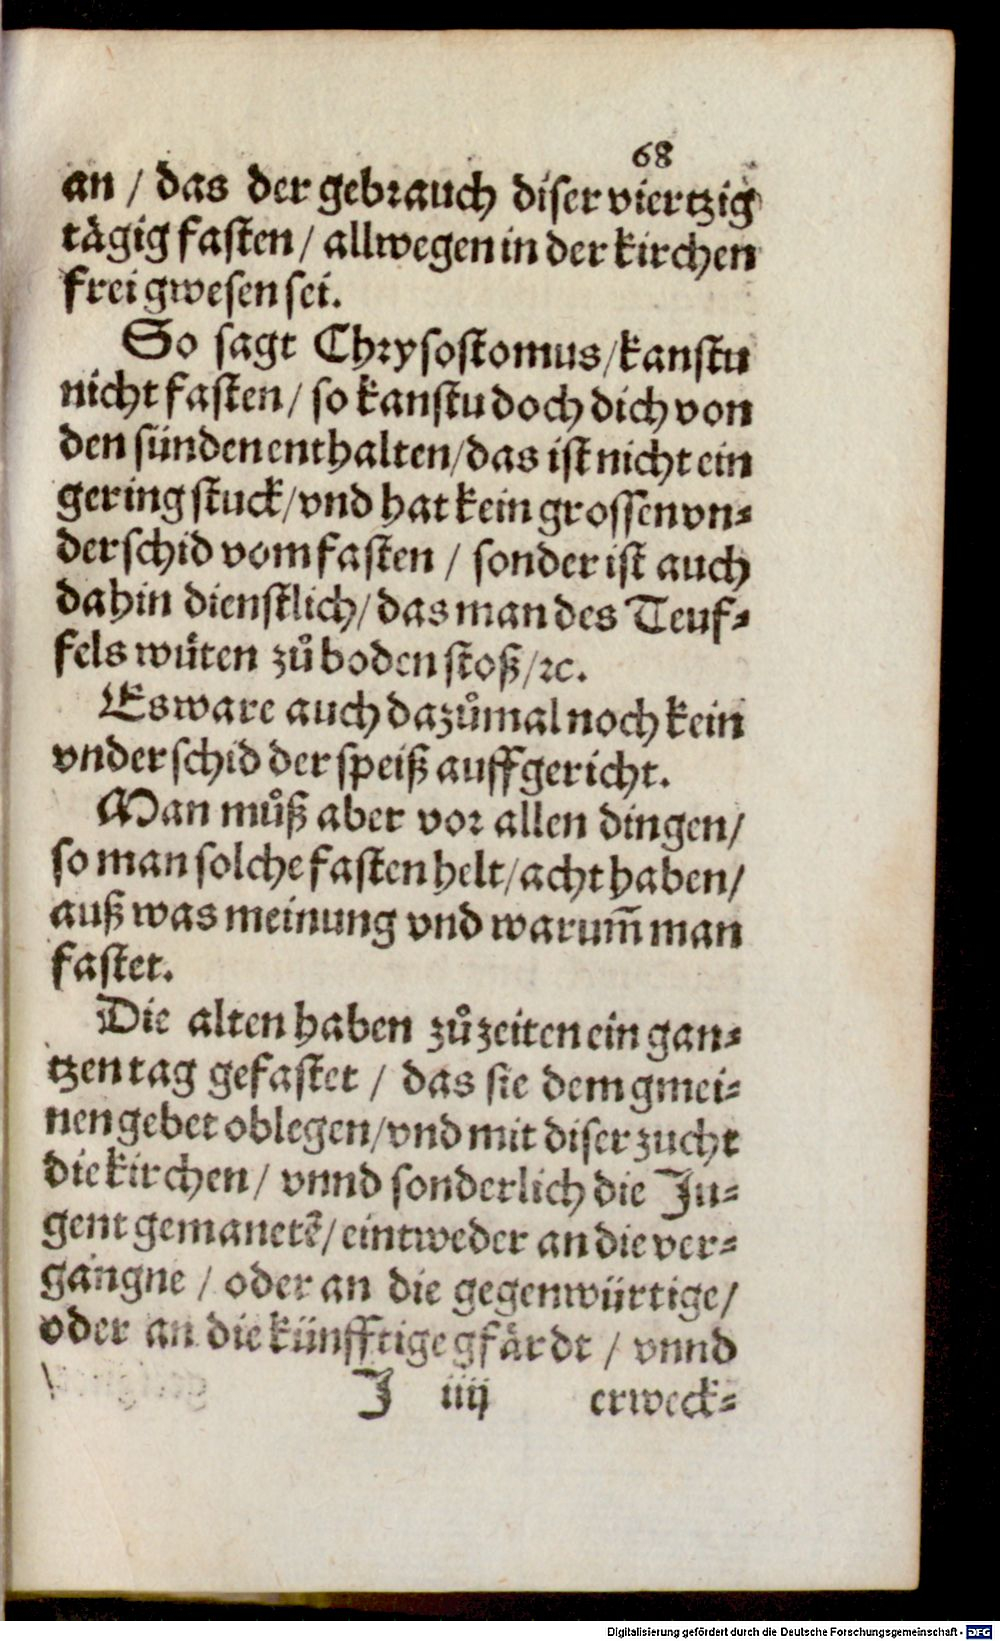 68
an / das der gebrauch diser viertzig
tägig fasten / allwegen in der kirchen
frei gwesen sei.
So sagt Chrysostomus / kanstu
nicht fasten / so kanstu doch dich von
den sünden enthalten / das ist nicht ein
gering stuck / vnd hat kein grossen vn⸗
derschid vom fasten / sonder ist auch
dahin dienstlich / das man des Teuf⸗
fels wüten zů boden stoß / ꝛc.
Es ware auch dazůmal noch kein
vnderschid der speiß auffgericht.
Man můß aber vor allen dingen /
so man solche fasten helt / acht haben /
auß was meinung vnd warum̃ man
fastet.
Die alten haben zů zeiten ein gan⸗
tzen tag gefastet / das sie dem gmei⸗
nen gebet oblegen / vnd mit diser zucht
die kirchen / vnnd sonderlich die Ju⸗
gent gemanetẽ / eintweder an die ver⸗
gangne / oder an die gegenwürtige /
oder an die künfftige gfärdt / vnnd
J iiij erweck⸗
Digitalisierung gefördert durch die Deutsche Forschungsgemeinschaft - DFG